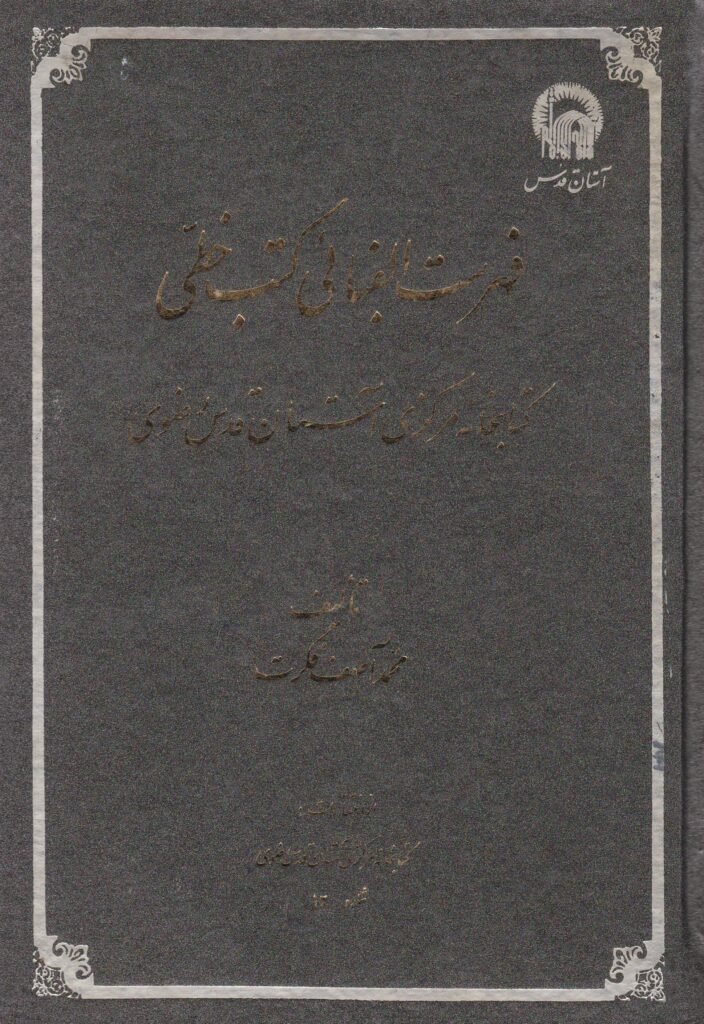 آستان قدس
فهرست الفبائی کتب خطی
کتابخانه مرکزی آستان قدس رضوی
تألیف
محمد آصف فکرت
انتشارات
کتابخانه مرکزی آستان قدس رضوی
شماره ۱۳